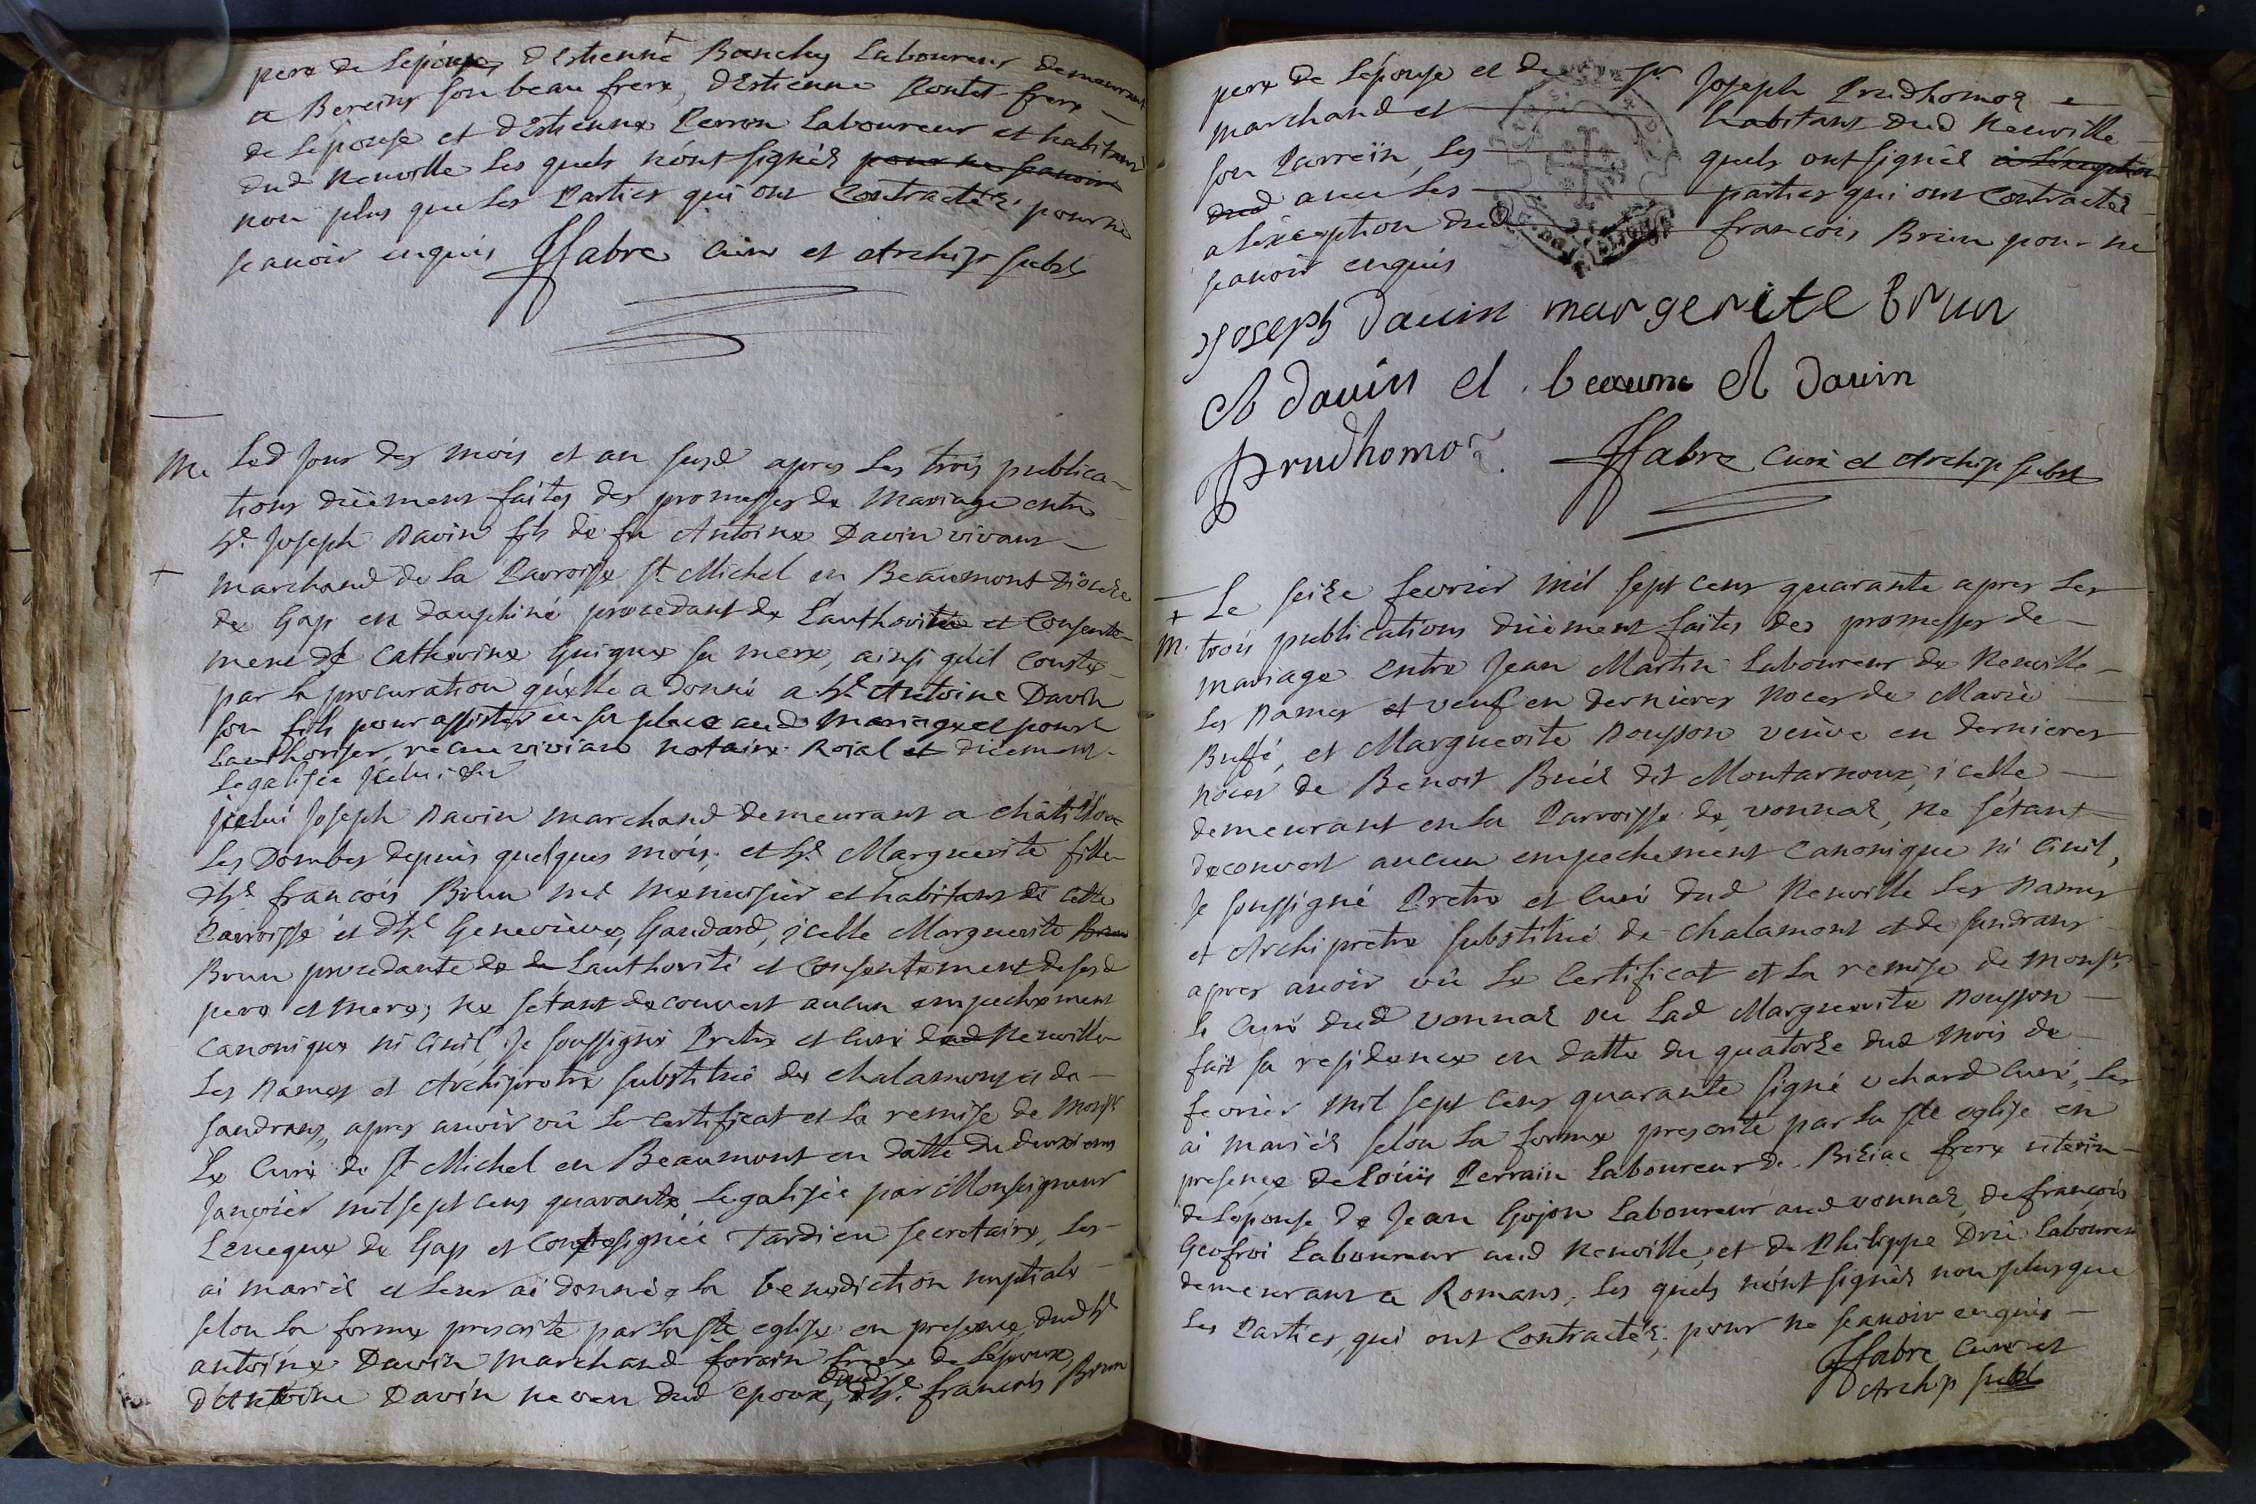 pere de L'épouse, d'Estienne Banchy Laboureur demeurant
a Bereins son beau frere, d'Estienne Pontet frere
de L'épouse et d'Estienne Perron Laboureur et habitant
dud Neuville Les quels n'ont signés pour ne scavoir
non plus que Les Parties qui ont Contractés pour ne
scavoir enquis JFabre Curé et Archip subst
M. Led Jour des mois et an susd apres Les trois publica-
tions düement faites des promesses de Mariage entre
Sr. Joseph Davin fils de fu Antoine Davin vivant
+ marchand de La Parroisse St Michel en Beaumont Diocese
de Gap en dauphiné procedant de L'authorité et Consente-
ment de Catherine Guigue sa mere, ainsi qu'il Conste
par la procuration qu'elle a donné a Sr. Antoine Davin
son fils pour assister en sa place aud Mariage et pour
L'authoriser, recue vivian notaire Roial et düement
Legalisée Jcelui dit
jcelui Joseph Davin marchand demeurant a chatillon
Les Dombes depuis quelques mois. et Sr. Marguerite fille
d'Sr. francois Brun me menuisier et habitant de cette
Parroisse et d'Sr. Genevieve Gaudard, jcelle Marguerite Brun
Brun procedante de de L'authorité et Consentement de sesd
pere et mere, Ne s'étant decouvert aucun empechement
Canonique ni Civil, Je soussigné Pretre et Curé dud Neuville
Les Dames et Archipretre substitué de chalamont et de
Sandrans, apres avoir vû Le certificat et La remise de Monsr
Le Curé de St Michel en Beaumont en datte du deuxieme
Janvier mil sept cens quarante Legalisée par Monseigneur
L'eveque de Gap et Contresignée Tardieu secretaire, Les
ai mariés et Leur ai donné La benediction nuptiale
selon La forme prescrite par La Ste eglise en presence dud Sr
antoine Davin marchand forain frere de L'époux,
d'Antoine Davin neveu dud epoux, dud Sr. francois Brun
pere de L'épouse et de Sr Joseph Prudhomoz
marchand et habitant dud Neuville
son Parrein, Les quels ont signés a L'exception
dud avec Les parties qui ont Contractés
a L'exception dud francois Brun pour ne
scavoir enquis
Joseph davin margerite brun
A davin et beaume A davin
Prudhomoz. JFabre Curé et Archip subst
Le seize fevrier mil sept cens quarante apres Les
+
M. trois publications düement faites des promesses de
mariage Entre Jean Martin Laboureur de Neuville
Les Dames et veuf en dernieres Noces de Marie
Buffé, et Marguerite Dousson veuve en dernieres
Noces de Benoit Bués dit Montarnoux, jcelle
demeurant en La Parroisse de vonnas, Ne s'étant
decouvert aucun empechement Canonique ni Civil,
Je soussigné Pretre et Curé dud Neuville Les Dames
et Archipretre substitué de chalamont et de Sandrans
apres avoir vû Le Certificat et La remise de Monsr
Le Curé dud vonnas ou Lad Marguerite Dousson
fait sa residence en datte du quatorze dud Mois de
fevrier mil sept cens quarante signé uchard Curé, Les
ai mariés selon La forme prescrite par La Ste eglise en
presence de Louis Perrain Laboureur de Biziac frere uterin
de L'épouse de Jean Gojon Laboureur aud vonnas, de francois
Geofroi Laboureur aud Neuville, et de Philippe Drü Laboureur
demeurant a Romans, Les quels n'ont signés non plus que
Les Parties, qui ont Contractés, pour ne scavoir enquis
JFabre Curé et
Archip subst